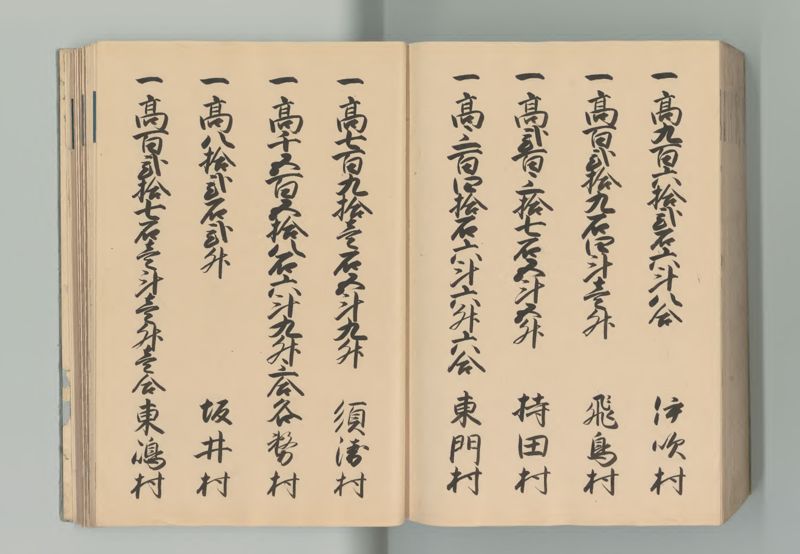 一高九百六拾弐石六斗八合 伊吹村
一高百弐拾九石四斗壱升 飛鳥村
一高弐百三拾七石五斗五升 持田村
一高三百四拾石六斗六升六合 東門村
一高七百九拾壱石五斗九升 須濤村
一高千五百五拾八石六斗九升三合 各務村
一高八拾弐石弐升 坂井村
一高百弐拾七石壱斗壱升壱合 東嶋村